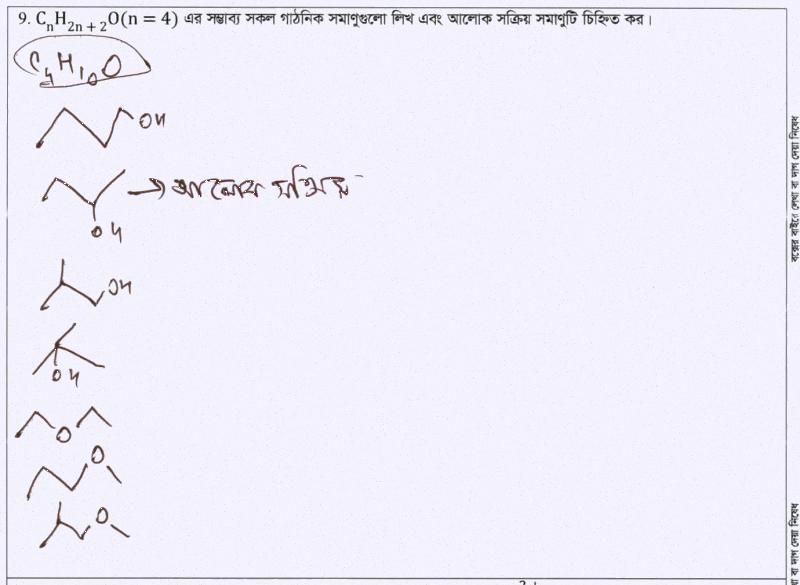 9. CₙH₂ₙ₊₂O(n = 4) এর সম্ভাব্য সকল গাঠনিক সমাণুগুলো লিখ এবং আলোক সক্রিয় সমাণুটি চিহ্নিত কর।
C₄H₁₀O
OH
→ আলোক সক্রিয়
OH
OH
OH
O
O
O
বক্সের বাইরে লেখা বা দাগ দেয়া নিষেধ
বা দাগ দেয়া নিষেধ